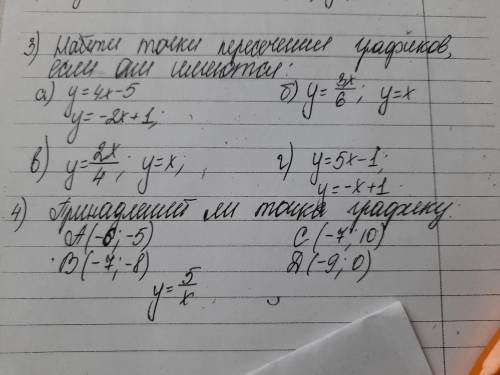 3) Найти точки пересечения графиков,
если они имеются:
а) y=4x-5 б) y=3x/6; y=x
y=-2x+1;
в) y=2x/4; y=x; г) y=5x-1;
y=-x+1
4) Принадлежит ли точка графику:
A(-6;-5) C(-7;10)
B(-7;-8) D(-9;0)
y=5/x